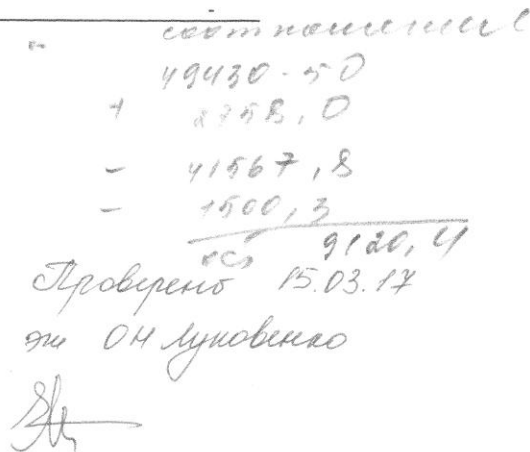 соотношении
49430-50
+ 2758,0
- 41567,8
- 1500,3
9120,4
Проверено 15.03.17
ОН Луковенко